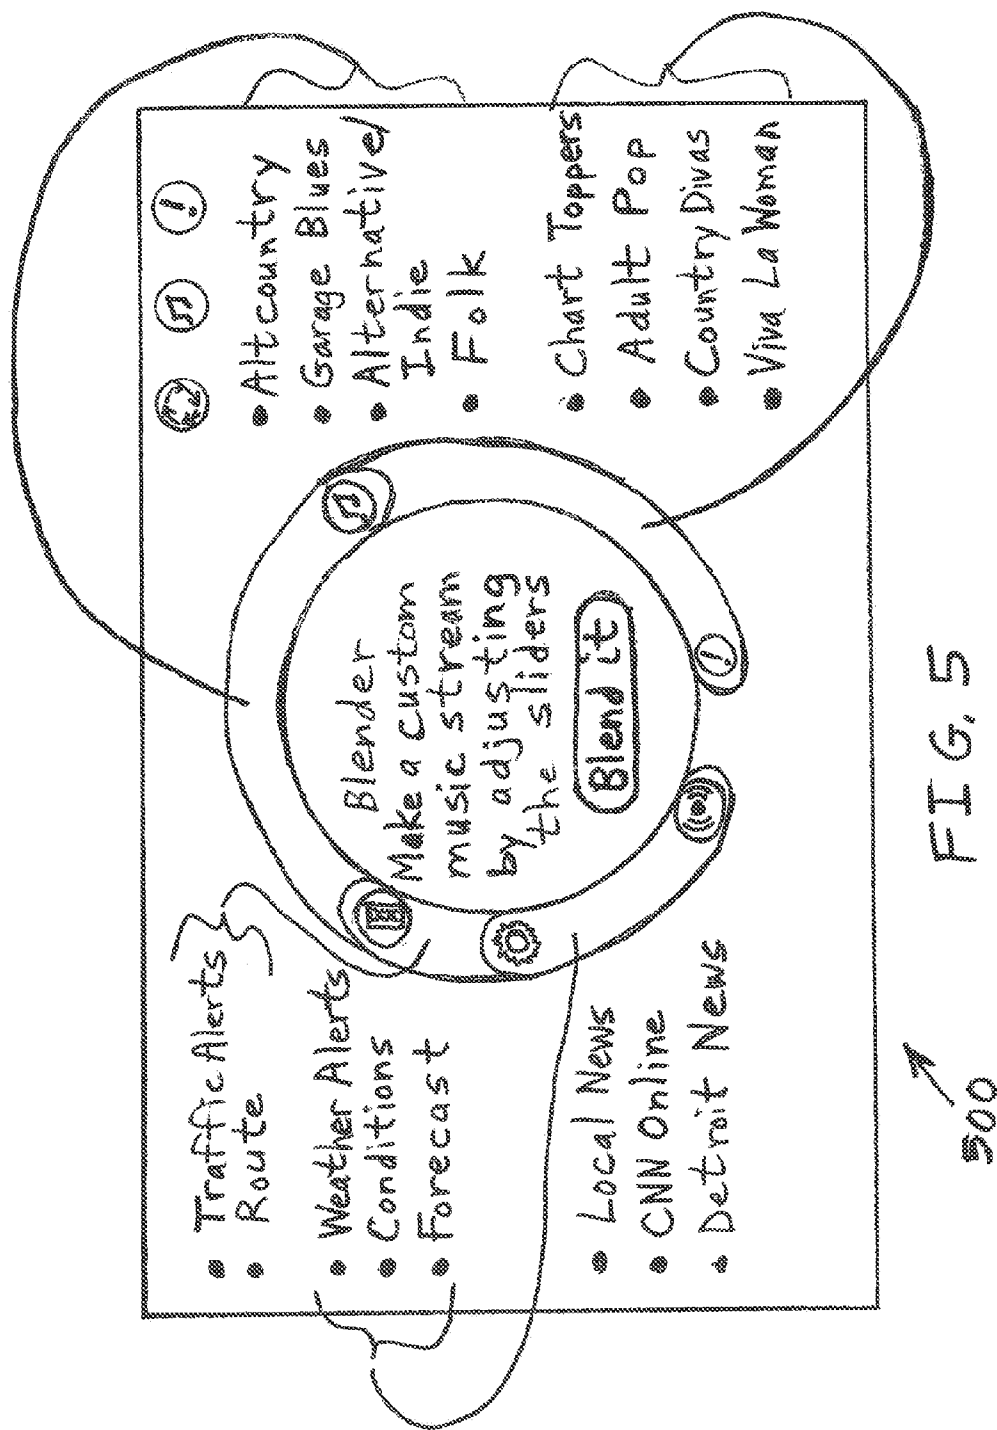 Traffic Alerts
Route
Weather Alerts
Conditions
Forecast
Local News
CNN Online
Detroit News
Blender
Make a custom
music stream
by adjusting
the sliders
Blend it
Altcountry
Garage Blues
Alternative/
Indie
Folk
Chart Toppers
Adult Pop
Country Divas
Viva La Woman
500
FIG. 5